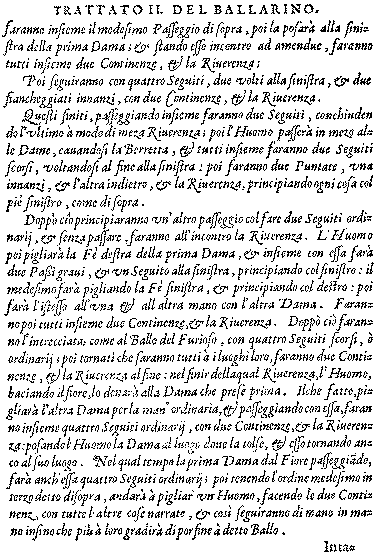 TRATTATO II. DEL BALLARINO.
faranno insieme il modesimo Passeggio di sopra, poi la posarà alla sini=
stra della prima Dama; & stando esse incontre ad amendue, faranno
tutti insieme due Continenze, & la Riuerenza;
Poi seguiranno con quattro Seguiti, due volti alla sinistra, & due
fiancheggiati innanzi, con due Continenze, & la Riuerenza.
Questi finiti, passeggiando insieme faranno due Seguiti, conchiuden
do l'vltimo à modo di meza Riuerenza; poi l'Huomo passerà in mezo al=
le Dame, cauandosi la Berretta, & tutti insieme faranno due Seguiti
scorsi, voltandosi al fine alla sinistra: poi faranno due Puntate, vna
innanzi, & l'altra indietro, & la Riuerenza, principiando ogni cosa col
piè sinistro, come di sopra.
Doppò ciò principiaranno vn'altro passeggio col fare due Seguiti ordi=
narij, & senza passare, faranno all'incontro la Riuerenza. L'Huomo
poi pigliarà la Fè destra della prima Dama, & insieme con essa farà
due Passi graui, & vn Seguito alla sinistra, principiando col sinistro: il
medesimo farà pigliando la Fè sinistra, & principiando col destro: poi
farà l'istesso all'vna & all'altra mano con l'altra Dama. Faran=
no poi tutti insieme due Continenze, & la Riuerenza. Doppò ciò faran=
no l'intrecciata: come al Ballo del Furioso, con quattro Seguiti scorsi, ò
ordinarij; poi tornati che saranno tutti à i luoghi loro, faranno due Conti=
nenze, & la Riuerenza al fine: nel finir della qual Riuerenza, l'Huomo,
baciando il fiore, lo donarà alla Dama che prese prima. Il che fatto, pi=
gliarà l'altra Dama per la man' ordinaria, & passeggiando con essa, faran
no insieme quattro Seguiti ordinarij, con due Continenze, & la Riueren=
za: posando l'Huomo la Dama al luogo doue la tolse, & esso tornando an=
co al suo luogo. Nel qual tempo la prima Dama dal Fiore passeggiãdo,
farà anch'essa quattro Seguiti ordinarij; poi tenendo l'ordine medesimo in
terzo detto di sopra, andarà à pigliar vn Huomo, facendo le due Conti=
nenze, con tutte l'altre cose narrate, & così seguiranno di mano in ma=
no insino che più à loro gradirà di por fine à detto Ballo.
Inta=